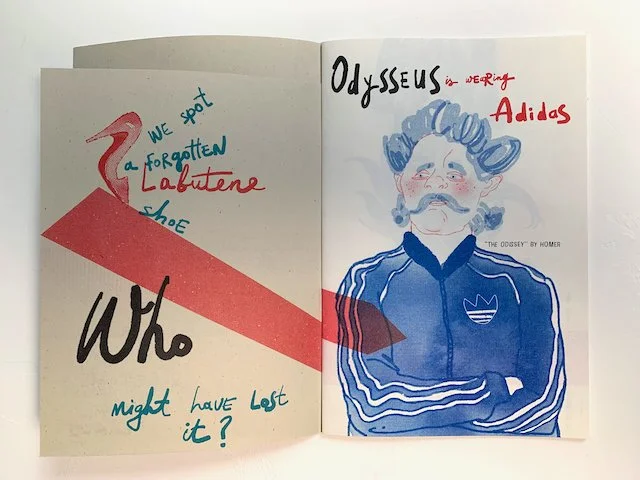 WE spot
a FORGOTTEN
Labutene
shoE
Who
Might hAVE Lost
it?
OdySSEUS is wEARing
Adidas
"THE ODISSEY" BY HOMER